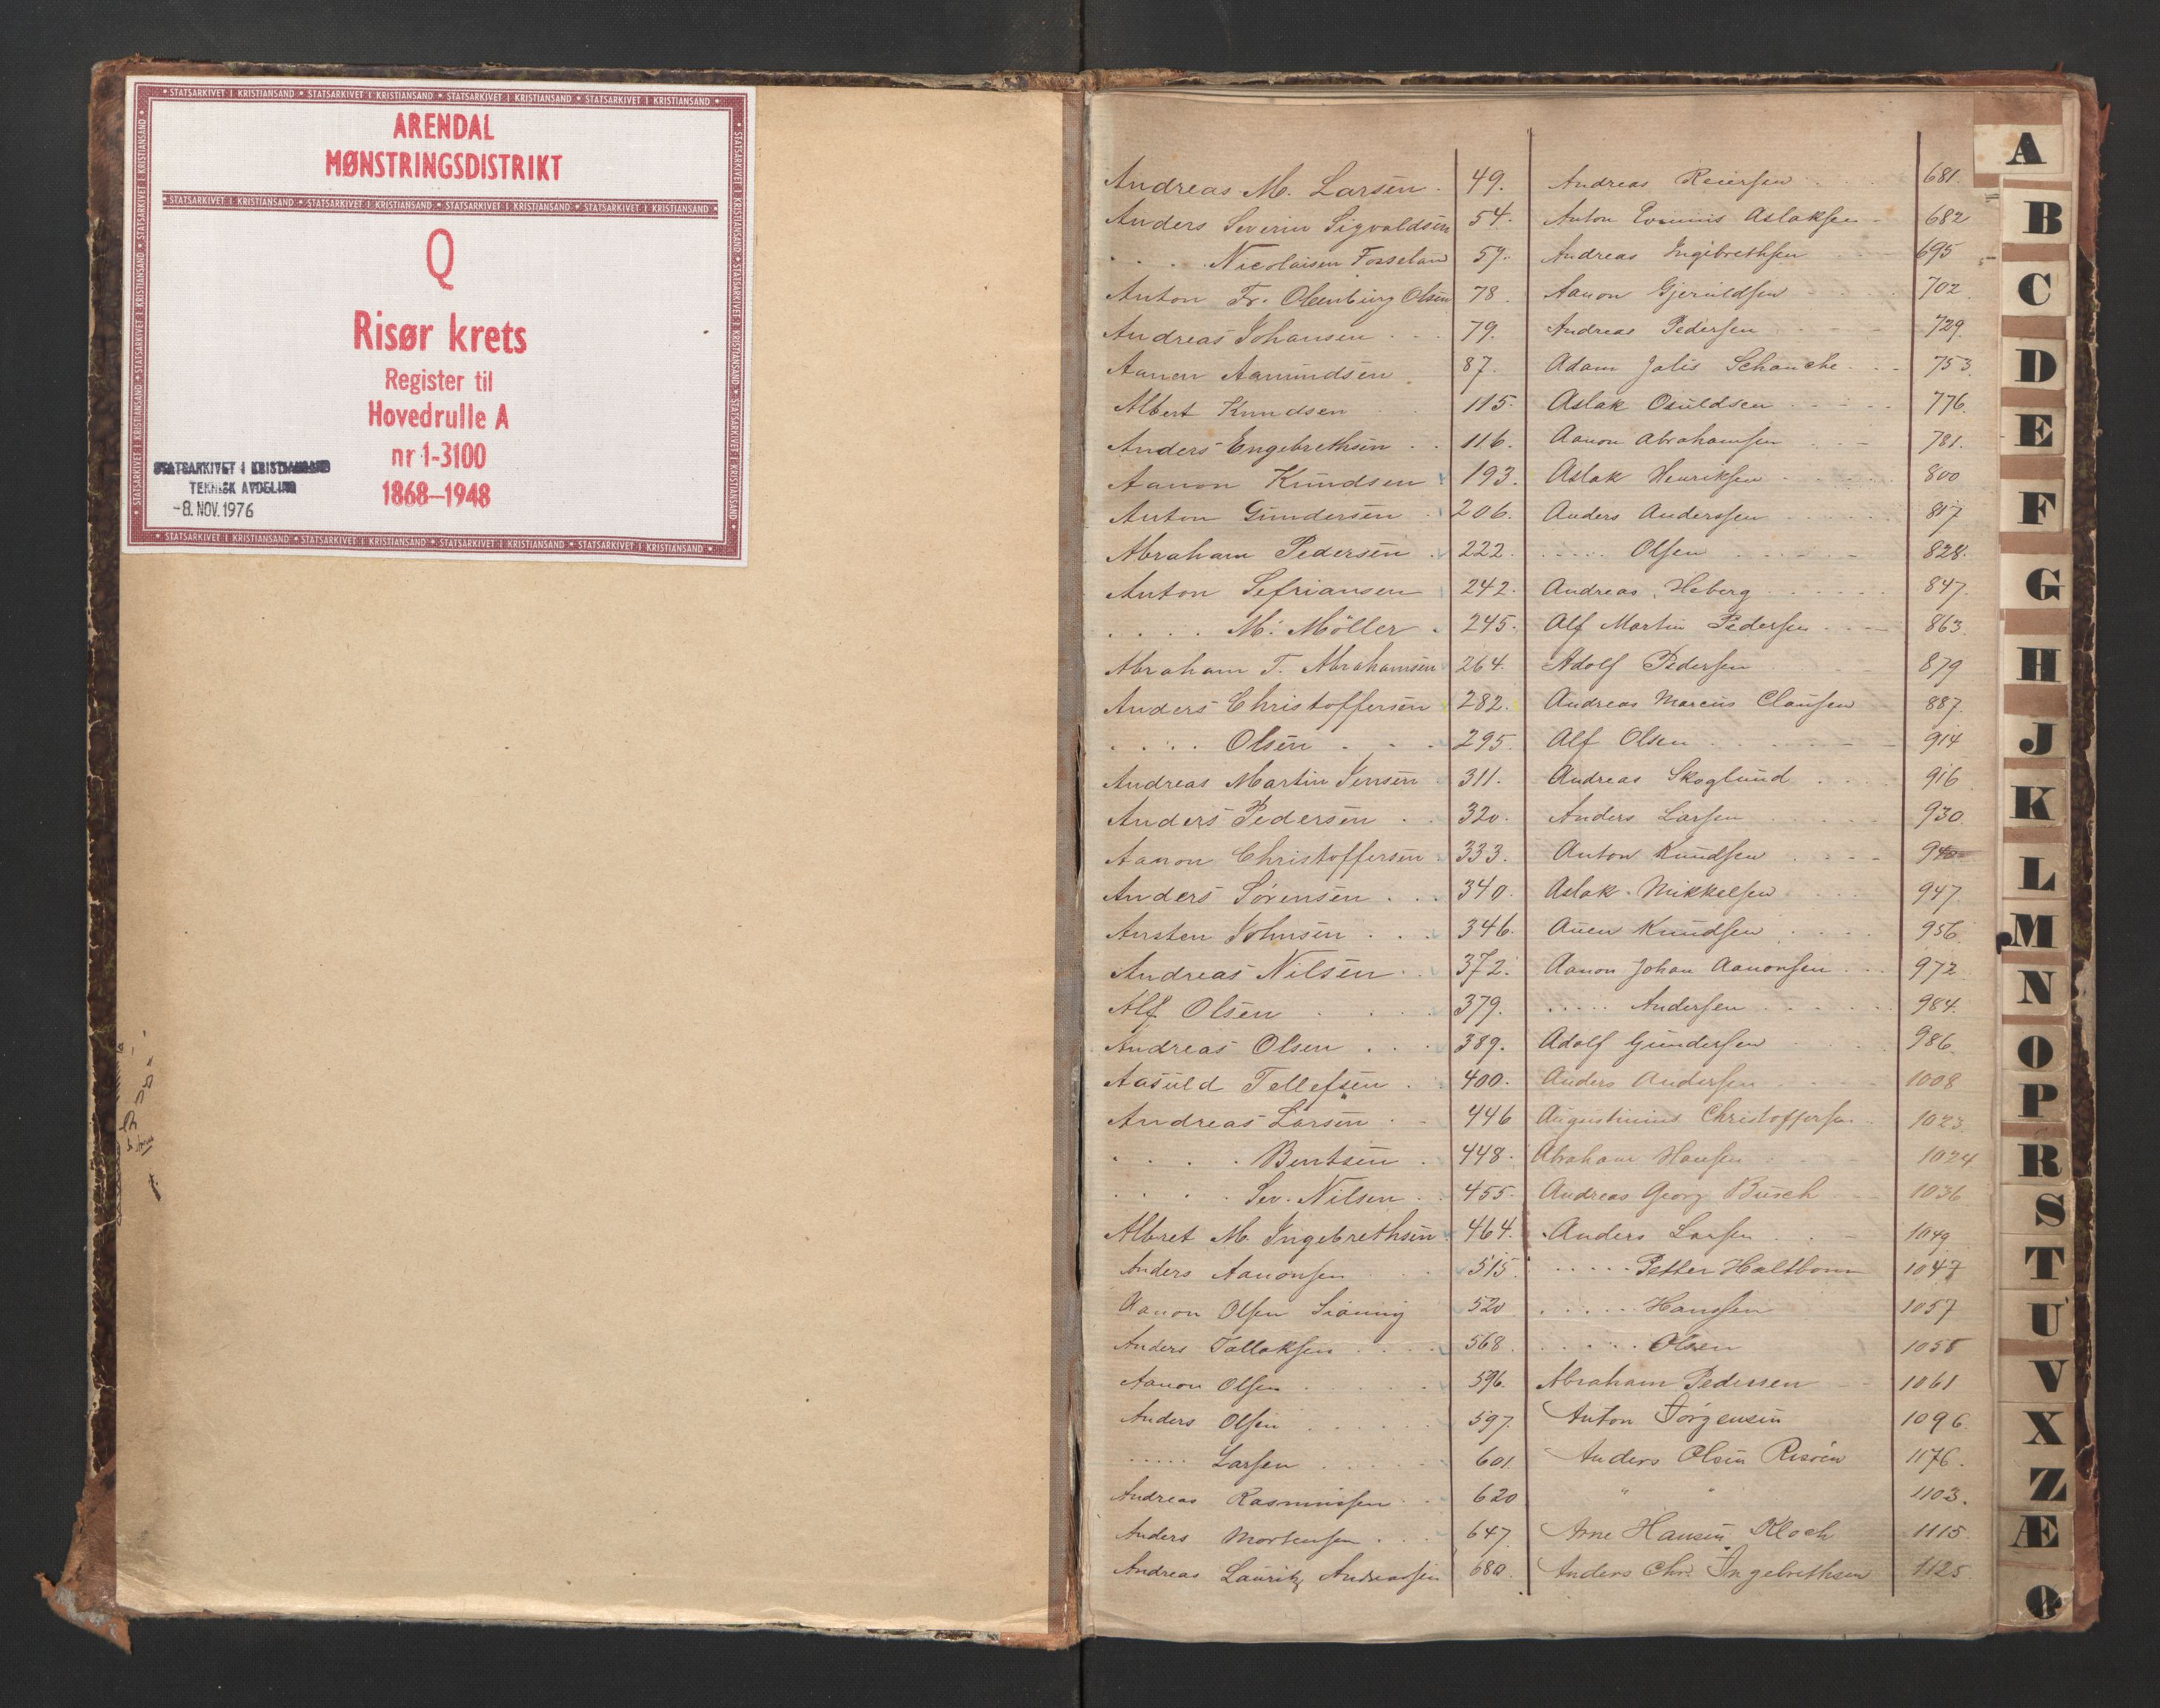 ARENDAL
MØNSTRINGSDISTRIKT
Q
Risør krets
Register til
Hovedrulle A
nr 1-3100
1868–1948
STATSARKIVET I KRISTIANSAND
TEKNISK AVDELING
-8. NOV. 1976
Andreas M. Larsen . 49.
Anders Severin Sigvaldsen 54.
. . . . Nicolaisen Fosseland 57.
Anton Fr. Olsen 78.
Andreas Johansen . . 79.
Aanen Aamundsen . 87.
Albert Knudsen . . 115.
Anders Engebrethsen . . 116.
Aanon Knudsen 193.
Anton Gundersen . 206.
Abraham Pedersen . 222.
Anton Sefriansen 242.
. . . . M. Möller . 245.
Abraham T. Abrahamsen 264.
Anders Christoffersen 282.
. . . . Olsen . . . 295.
Andreas Martin Jensen 311.
Anders Pedersen . . 320.
Aanon Christoffersen . 333.
Anders Sörensen . . 340.
Austen Johnsen . . . 346.
Andreas Nilsen . . 372.
Alf Olsen . . . . 379.
Andreas Olsen . . . 389.
Aasuld Tellefsen . . 400.
Andreas Larsen . . 446
. . . . Bentsen . 448.
. . . . Sev. Nilsen . . 455.
Albret M. Ingebrethsen . 464.
Anders Aanonsen . . 515.
Aanon Olsen 520
Anders Tallaksen . . . . 568.
Aanon Olsen . . . . . 596.
Anders Olsen . . . . . 597.
. . . . . Larsen . . . . . 601.
Andreas Rasmussen . . 620
Anders Mortensen . . . 647.
Andreas Lauritz Andreassen 680.
Andreas Reiersen . . 681.
Anton Aslaksen - 682
Andreas Engebrethsen . - 695
Aanon Gjeruldsen . - . 702.
Andreas Pedersen . . - - 729.
Adam Schanche . . - 753.
Aslak Osuldsen . - . - . 776.
Aanon Abrahamsen . . - 781.
Aslak Henriksen . . . . 800
Anders Anderssen . . . 817
. . . . . Olsen . . - . - 828.
Andreas Heberg . . . . . . 847.
Alf Martin Pedersen . . - 863.
Adolf Pedersen . . 879
Andreas Marcus Clausen 887.
Alf Olsen . . . . - - 914
Andreas Skoglund . . . 916
Anders Larsen . . . . . 930.
Anton Knudsen . . - -
Aslak Mikkelsen . . . . 947.
Auen Knudsen . . . . 956.
Aanon Johan Aanonsen . . . 972
. . . . . Andersen . . . . . . 984.
Adolf Gundersen . . . 986.
Anders Andersen . . . . 1008
Augustinius Christoffersen . . 1023.
Abraham Hansen . . . 1024
Andreas Georg Busch 1036
Anders Larsen . . - 1049
. . . . . Petter Holtbom 1047
. . . . . Hanssen 1057
. . . . . Olsen 1058
Abraham Pedersen 1061
Anton Jörgensen 1096.
Anders Olsen Risöen 1176.
" " 1103.
Arne Hansen Kloch 1115.
Anders Chr. Ingebrethsen 1125
A
B
C
D
E
F
G
H
J
K
L
M
N
O
P
R
S
T
U
V
X
Z
Æ
Ø